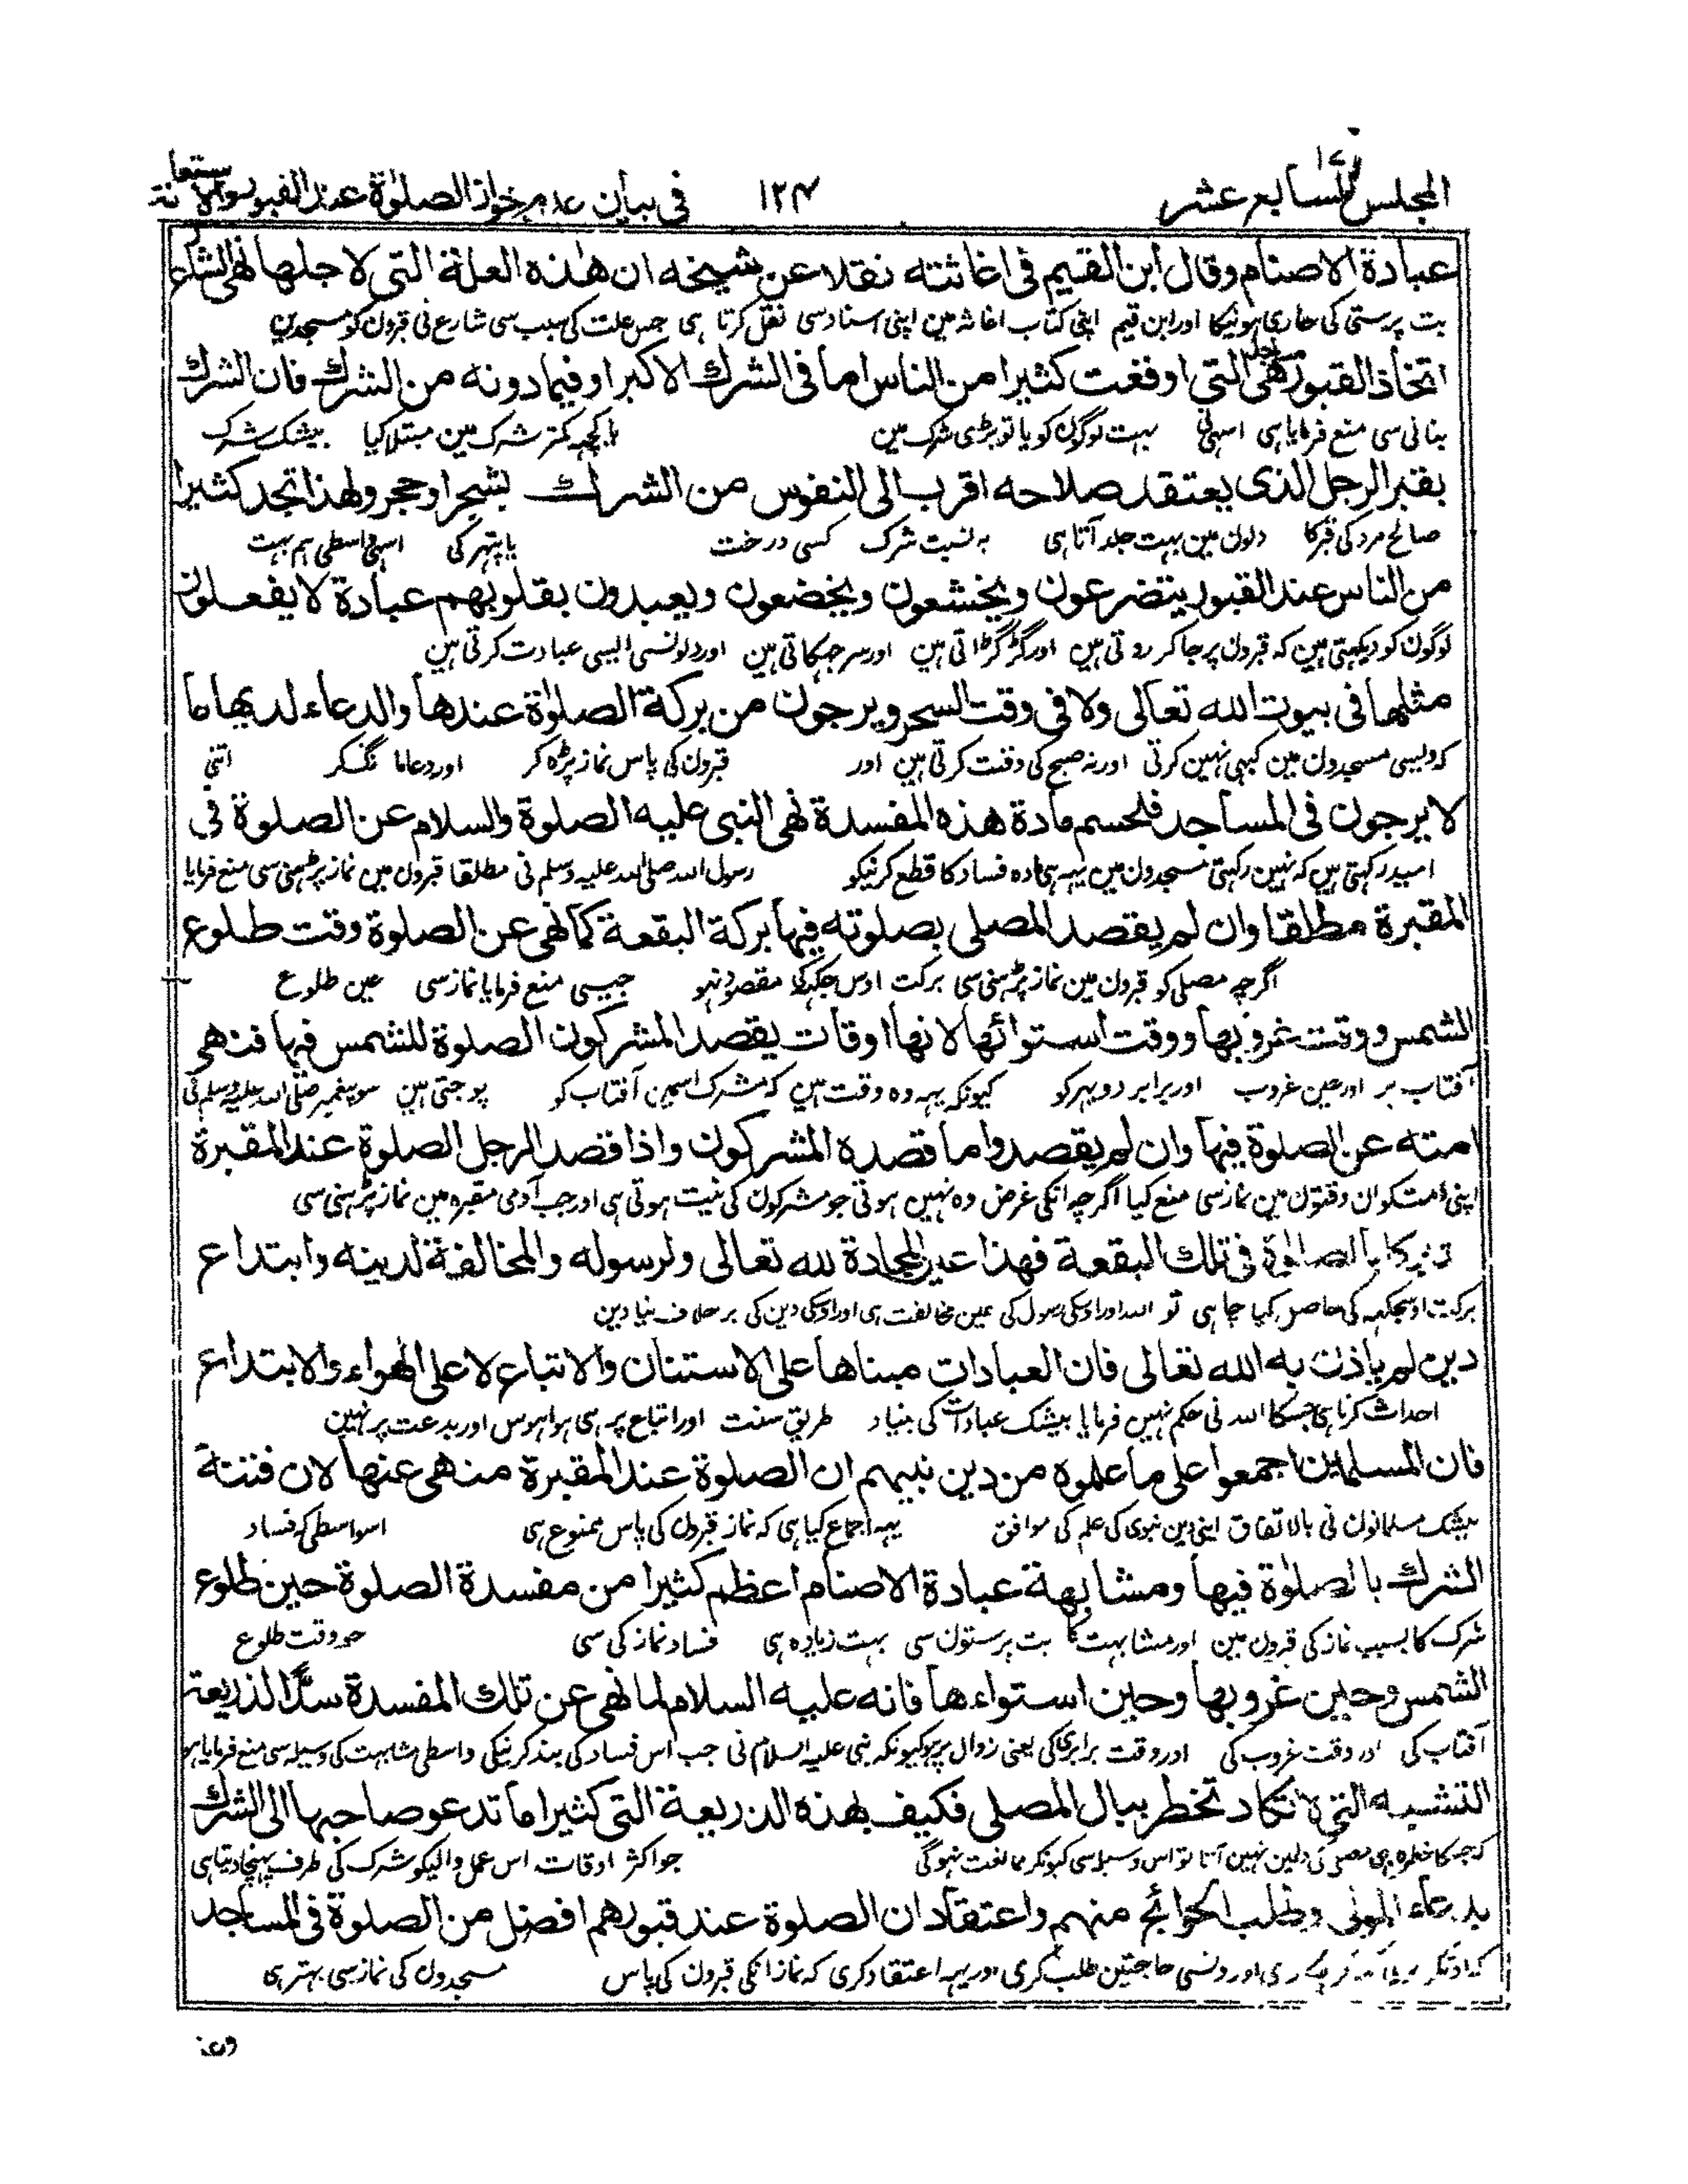 المجلس السابع عشر ١٢٤ فى بيان عدم جواز الصلوٰة عند القبور والاستعانة
عبادة الاصنام وقال ابن القيم فى اغاثته نقلا عن شيخه ان هٰذه العلة التى لاجلها نهى الشارع
بت پرستى كى جارى ہونيكا اور ابن قيم اپنى كتاب اغاثہ مين اپنى استاد سى نقل كرتا ہى جس علت كى سبب سى شارع نى قبرون كو مسجدين
اتخاذ القبور مساجد هى التى اوقعت كثيرا من الناس اما فى الشرك الاكبر او فيما دونه من الشرك فان الشرك
بنانى سى منع فرمايا ہى اسہى نى بہت لوگون كو يا تو بڑى شرك مين يا كچہہ كمتر شرك مين مبتلا كيا بيشك شرك
بقبر الرجل الذى يعتقد صلاحه اقرب الى النفوس من الشرك بشجر او حجر ولهذا تجد كثيرا
صالح مرد كى قبر كا دلون مين بہت جلد آتا ہى بہ نسبت شرك كسى درخت يا پتہر كى اسہى واسطى ہم بہت
من الناس عند القبور يتضرعون ويخشعون ويخضعون ويعبدون بقلوبهم عبادة لا يفعلون
لوگون كو ديكہتى ہين كہ قبرون پر جا كر روتى ہين اور گڑگڑاتى ہين اور سر جہكاتى ہين اور دلونسى ايسى عبادت كرتى ہين
مثلها فى بيوت الله تعالى ولا فى وقت السحر ويرجون من بركة الصلوٰة عندها والدعاء لديها ما
كہ ويسى مسجدون مين كبہى نہين كرتى اور نہ صبح كى وقت كرتى ہين اور قبرون كى پاس نماز پڑہ كر اور دعا مانگ كر اتنى
لا يرجون فى المساجد فلحسم مادة هذه المفسدة نهى النبى عليه الصلوة والسلام عن الصلوة فى
اميد ركہتى ہين كہ نہين ركہتى مسجدون مين يہہ ہى مادہ فساد كا قطع كرنيكو رسول الله صلى الله عليہ وسلم نى مطلقا قبرون مين نماز پڑہنى سى منع فرمايا
المقبرة مطلقا وان لم يقصد المصلى بصلوته فيها بركة البقعة كما نهى عن الصلوة وقت طلوع
اگرچہ مصلى كو قبرون مين نماز پڑہنى سى بركت اوس جگہہ كى مقصود نہو جيسى منع فرمايا نماز سى عين طلوع
الشمس ووقت غروبها ووقت استوائها لانها اوقات يقصد المشركون الصلوة للشمس فيها فنهى
آفتاب پر اور عين غروب اور برابر دوپہر كو كيونكہ يہہ وہ وقت ہين كہ مشرك اسمين آفتاب كو پوجتى ہين سو پيغمبر صلى الله عليہ وسلم نى
امته عن الصلوة فيها وان لم يقصدوا ما قصده المشركون واذا قصد الرجل الصلوة عند المقبرة
اپنى امت كو ان وقتون مين نماز سى منع كيا اگرچہ انكى غرض وہ نہين ہوتى جو مشركون كى نيت ہوتى ہى اور جب آدمى مقبرہ مين نماز پڑہنى سى
تبركا بالصلوٰة فى تلك البقعة فهذا عين المحادة لله تعالى ولرسوله والمخالفة لدينه وابتداع
بركت اوسجگہہ كى حاصل كيا چاہى تو الله اور اوسكى رسول كى عين مخالفت ہى اور اوسكى دين كى برخلاف نيا دين
دين لم ياذن به الله تعالى فان العبادات مبناها على الاستنان والاتباع لا على الهواء والابتداع
احداث كرنا ہى جسكا الله نى حكم نہين فرمايا بيشك عبادات كى بنياد طريق سنت اور اتباع پر ہى ہوا ہوس اور بدعت پر نہين
فان المسلمين اجمعوا على ما علموه من دين نبيهم ان الصلوة عند المقبرة منهى عنها لان فتنة
بيشك مسلمانون نى بالاتفاق اپنى دين نبوى كى علم كى موافق يہہ اجماع كيا ہى كہ نماز قبرون كى پاس ممنوع ہى اسواسطى كہ فساد
الشرك بالصلوٰة فيها ومشابهة عبادة الاصنام اعظم كثيرا من مفسدة الصلوة حين طلوع
شرك كا بسبب نماز كى قبرون مين اور مشابہت كا بت پرستون سى بہت زيادہ ہى فساد نماز كى سى جو وقت طلوع
الشمس وحين غروبها وحين استواءها فانه عليه السلام لما نهى عن تلك المفسدة سدًّا لذريعة
آفتاب كى اور وقت غروب كى اور وقت برابرى كى يعنى زوال پر ہو كيونكہ نبى عليہ السلام نى جب اس فساد كى بند كرنيكى واسطى مشابہت كى وسيلہ سى منع فرمايا ہو
التشبه التى لا تكاد تخطر ببال المصلى فكيف بهذه الذريعة التى كثيرا ما تدعو صاحبها الى الشرك
كہ جسكا خطرہ بہى مصلى كى دلمين نہين آتا تو اس وسيلہ سى كيونكر ممانعت نہوگى جو اكثر اوقات اس عمل واليكو شرك كى طرف پہنچا ديتا ہى
بدعاء الموتى وطلب الحوائج منهم واعتقاد ان الصلوة عند قبورهم افضل من الصلوة فى المساجد
اور ونسى حاجتين طلب كرى اور يہہ اعتقاد كرى كہ نماز انكى قبرون كى پاس مسجدون كى نماز سى بہتر ہى